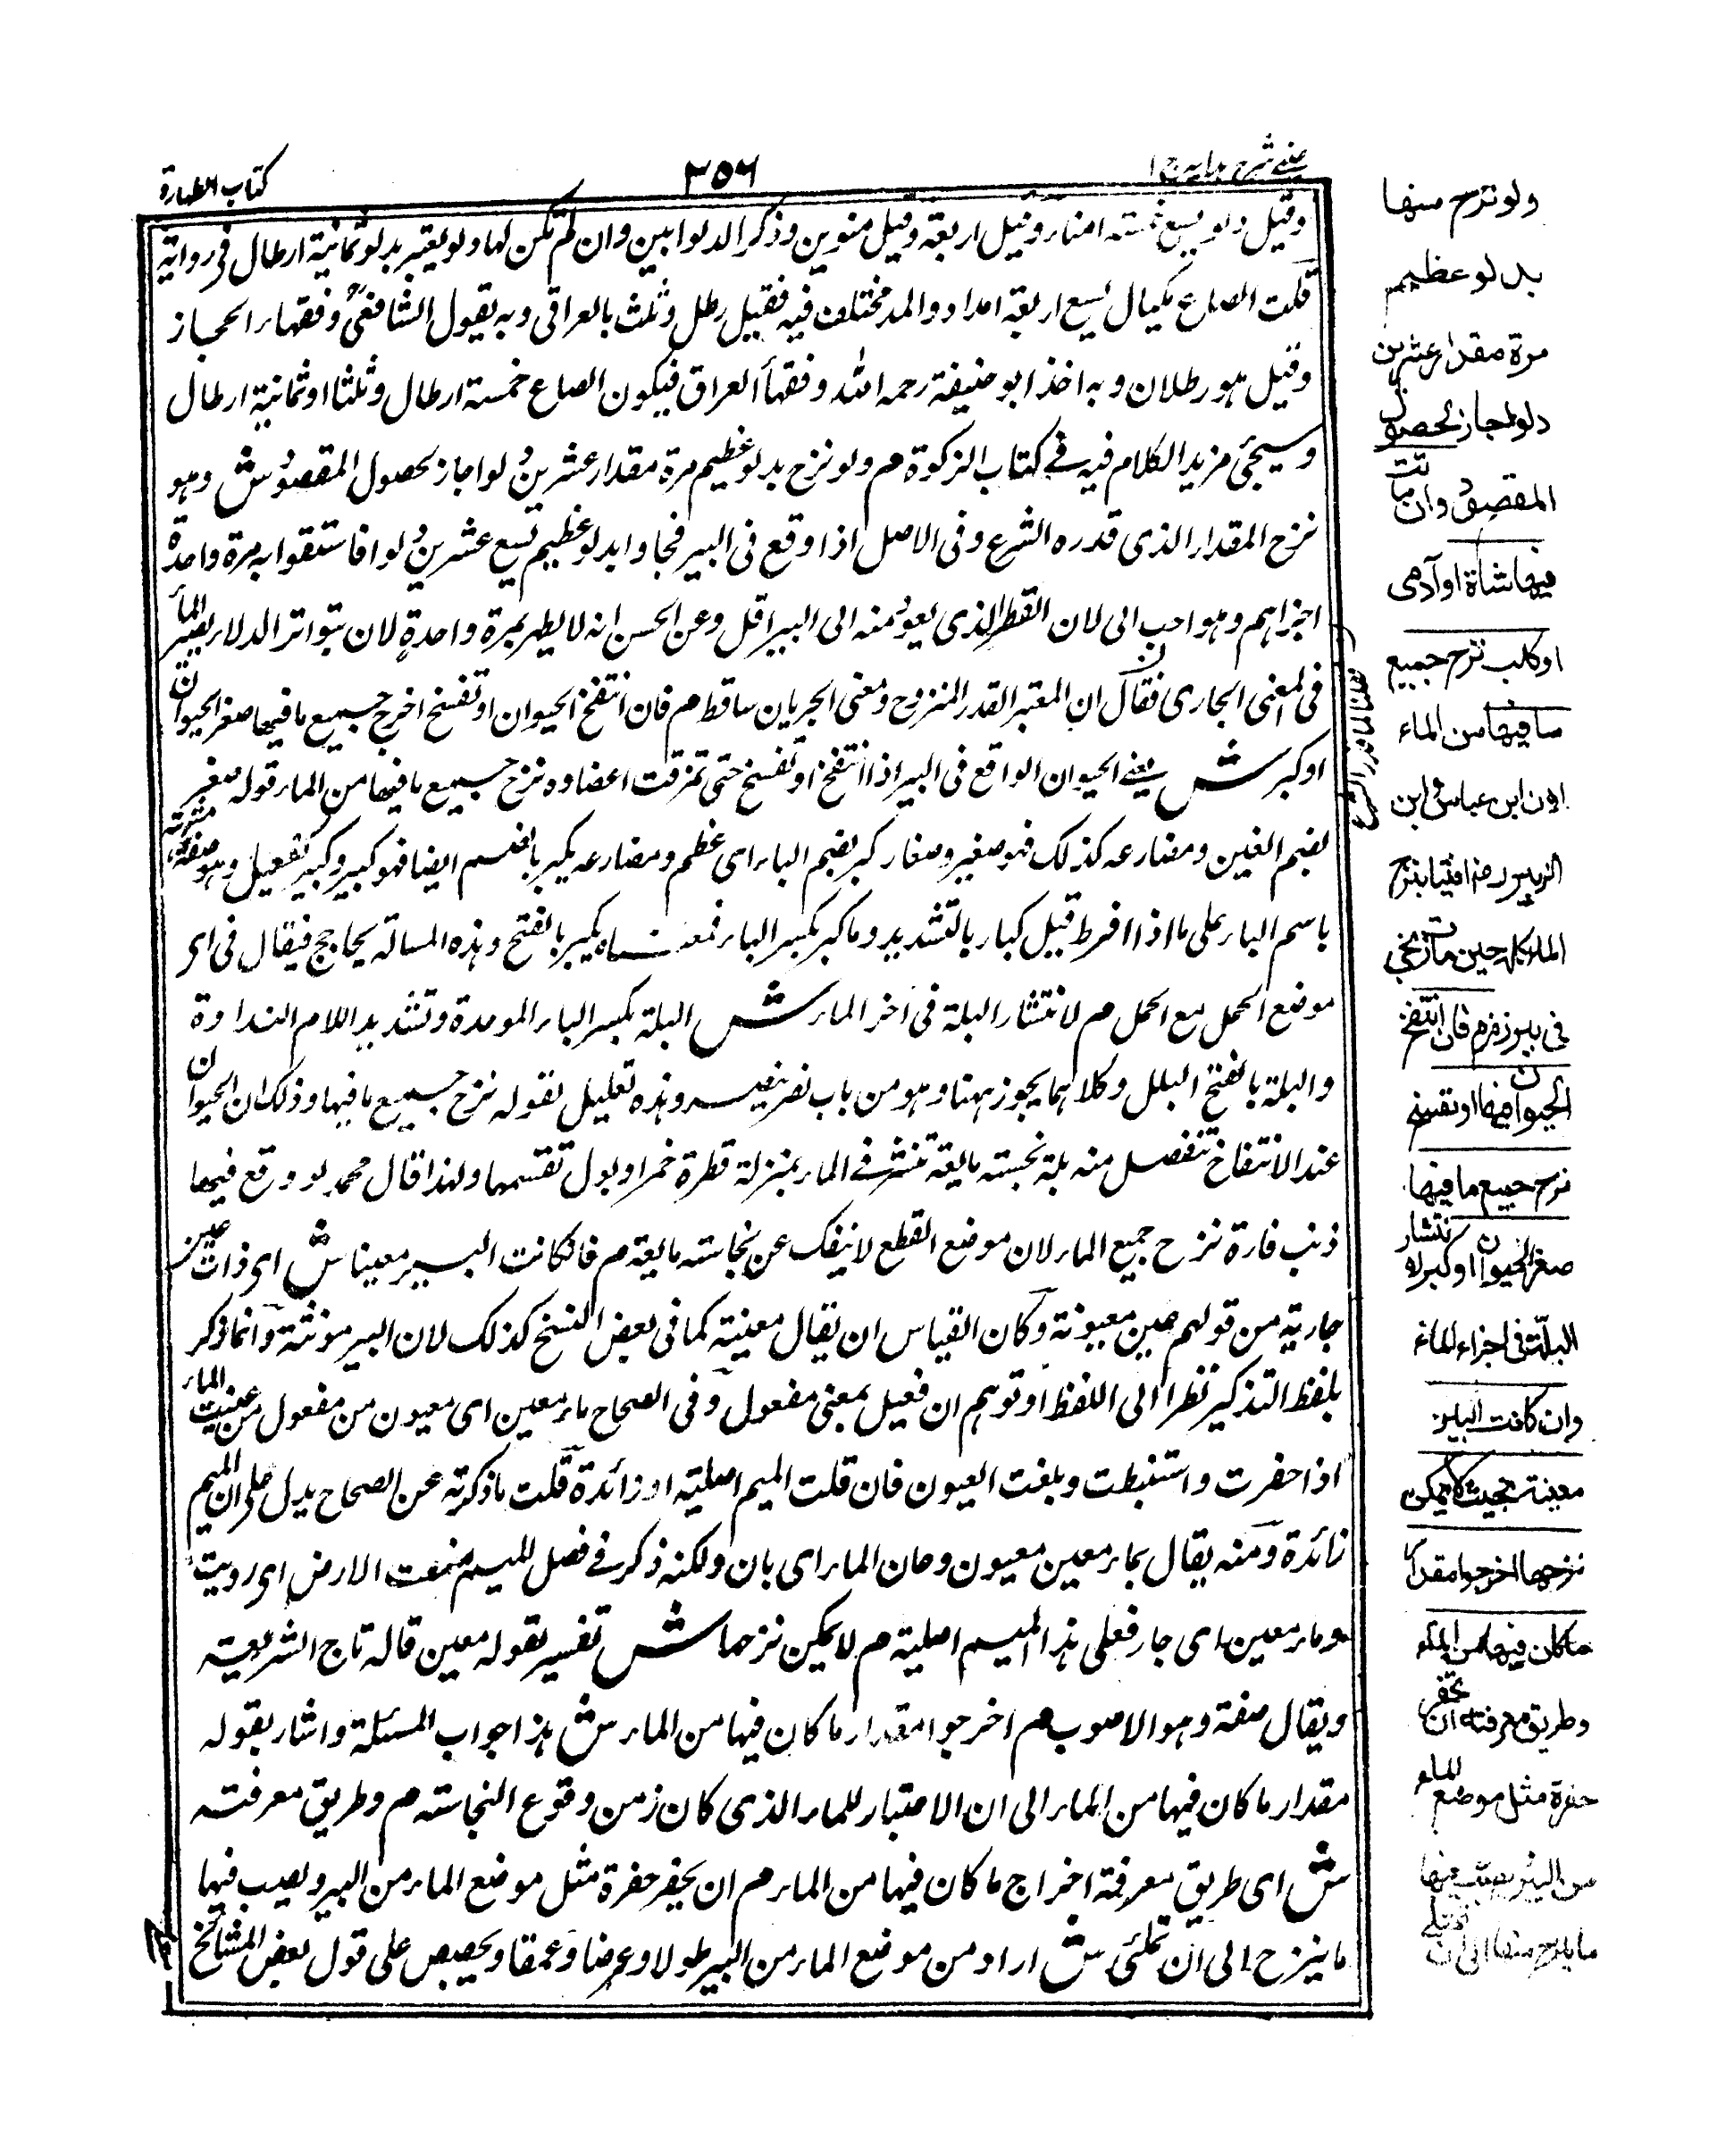 كتاب الطهارة
٣٥٦
عيني شرح هدايه ج ١
وقيل دلو يسع خمسة امناء وقيل اربعة وقيل منوين وذكر الدلو ابين وان لم تكن لها دلو يعتبر بدلو ثمانية ارطال في رواية
قلت الصاع مكيال يسع اربعة امداد والمد مختلف فيه فقيل رطل وثلث بالعراقي وبه يقول الشافعي وفقهاء الحجاز
وقيل هو رطلان وبه اخذ ابو حنيفة رحمه الله وفقهأ العراق فيكون الصاع خمسة ارطال وثلثا او ثمانية ارطال
وسيجئ مزيد الكلام فيه في كتاب الزكوة م ولو نزح بدلو عظيم مرة مقدار عشرين دلوا جاز لحصول المقصود ش وهو
نزح المقدار الذي قدره الشرع وفي الاصل اذا وقع في البير فجاوا بدلو عظيم يسع عشرين دلوا فاستقوا به مرة واحدة
اجزاهم وهو احب الى لان القطر الذي يعود منه الى البير اقل وعن الحسن انه لا يطهر بمرة واحدة لان بتواتر الدلاء يصير الماء
في المعنى الجاري فقال ان المعتبر القدر المنزوح ومعنى الجريان ساقط م فان انتفخ الحيوان او تفسخ اخرج جميع ما فيها صغر الحيوان
او كبر ش يعني الحيوان الواقع في البير اذا انتفخ او تفسخ حتى تمزقت اعضاوه نزح جميع ما فيها من الماء قوله صغر
بضم الغين ومضارعه كذلك فهو صغير وصغار كبر بضم الباء اي عظم ومضارعه يكبر بالضم ايضا فهو كبير وكبير بفعيل وهو صفة مشبهة
باسم الباء على ما اذا افرط قيل كبار بالتشديد وما كبر بكسر الباء فمعناه يكبر بالفتح وهذه المسالة يحاجج فيقال في اى
موضع الحمل مع الحمل م لانتشار البلة في اخر الماء ش البلة بكسر الباء الموحدة وتشديد اللام النداوة
والبلة بالفتح البلل وكلاهما يجوز ههنا وهو من باب نصر ينصر وهذه تعليل لقوله نزح جميع ما فيها وذلك ان الحيوان
عند الانتفاخ تنفصل منه بلة نجسته مايعة تنتشر في الماء بمنزلة قطرة خمر او بول تقسمها ولهذا قال محمد لو وقع فيها
ذنب فارة نزح جميع الماء لان موضع القطع لا ينفك عن نجاسته مايعة م فان كانت البير معينا ش اى ذات عين
جارية من قولهم عين معيونة وكان القياس ان يقال معينة كما في بعض النسخ كذلك لان البير مونثة وانما ذكر
بلفظ التذكير نظرا الى اللفظ او توهم ان فعيل بمعنى مفعول وفي الصحاح ماء معين اى معيون من مفعول من عنيت الماء
اذا حفرت واستنبطت وبلغت العيون فان قلت الميم اصلية او زائدة قلت ما ذكرته عن الصحاح يدل على ان الميم
زائدة ومنه يقال بماء معين معيون وعان الماء اى بان ولكنه ذكر في فصل الميم معنت الارض اى رويت
وماء معين اى جار فعلى هذا الميم اصلية م لا يمكن نزحها ش تفسير لقوله معين قاله تاج الشريعة
ويقال صفة وهو الاصوب م اخرجوا مقدار ما كان فيها من الماء ش هذا جواب المسئلة واشار بقوله
مقدار ما كان فيها من الماء الى ان الاعتبار للماء الذي كان زمن وقوع النجاسته م وطريق معرفته
ش اى طريق معرفة اخراج ما كان فيها من الماء م ان يحفر حفرة مثل موضع الماء من البير ويصب فيها
ما ينزح الى ان تمتلئى ش اراد من موضع الماء من البير طولا وعرضا وعمقا ويجصص على قول بعض المشائخ
ولو نزح منها
بدلو عظيم
مرة مقدار عشرين
دلوا جاز لحصول
المقصود وان ماتت
فيها شاة او آدمي
او كلب نزح جميع
ما فيها من الماء
لان ابن عباس وابن
الزبير رض افتيا بنزح
الماء كله حين مات زنجي
في بير زمزم فان انتفخ
الحيوان فيها او تفسخ
نزح جميع ما فيها
صغر الحيوان او كبر لانتشار
البلة في اجزاء الماء
وان كانت البير
معينة بحيث لا يمكن
نزحها اخرجوا مقدار
ما كان فيها من الماء
وطريق معرفته ان تحفر
حفرة مثل موضع الماء
من البئر يصب فيها
ما ينزح منها الى ان تمتلي